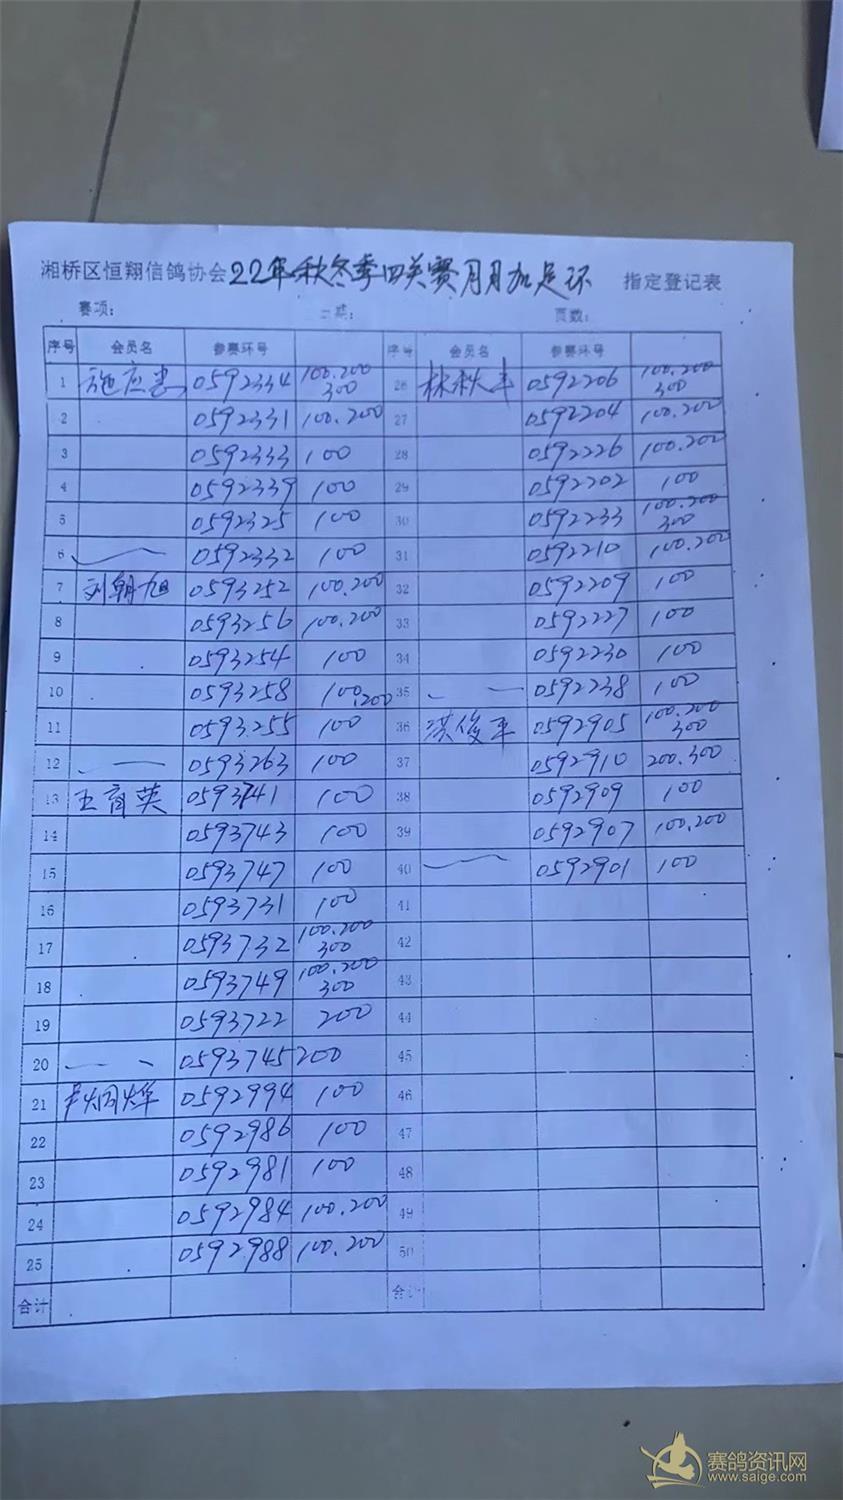 湘桥区恒翔信鸽协会22年秋冬季四关赛月月加足环 指定登记表
赛项: 日期: 页数:
序号 会员名 参赛环号 序号 会员名 参赛环号
1 施应忠 0592334 100.200 300 26 林秋平 0592206 100.200 300
2 0592331 100.200 27 0592204 100.200
3 0592333 100 28 0592226 100.200
4 0592339 100 29 0592202 100
5 0592325 100 30 0592233 100.200 300
6 0592332 100 31 0592210 100.200
7 刘朝旭 0593252 100.200 32 0592209 100
8 0593256 100.200 33 0592227 100
9 0593254 100 34 0592230 100
10 0593258 100.200 35 0592238 100
11 0593255 100 36 洪俊平 0592905 100.200 300
12 0593263 100 37 0592910 200.300
13 王育英 0593741 100 38 0592909 100
14 0593743 100 39 0592907 100.200
15 0593747 100 40 0592901 100
16 0593731 100 41
17 0593732 100.200 300 42
18 0593749 100.200 300 43
19 0593722 200 44
20 0593745 200 45
21 炯烽 0592994 100 46
22 0592986 100 47
23 0592981 100 48
24 0592984 100.200 49
25 0592988 100.200 50
合计 合计
赛鸽资讯网
www.saige.com